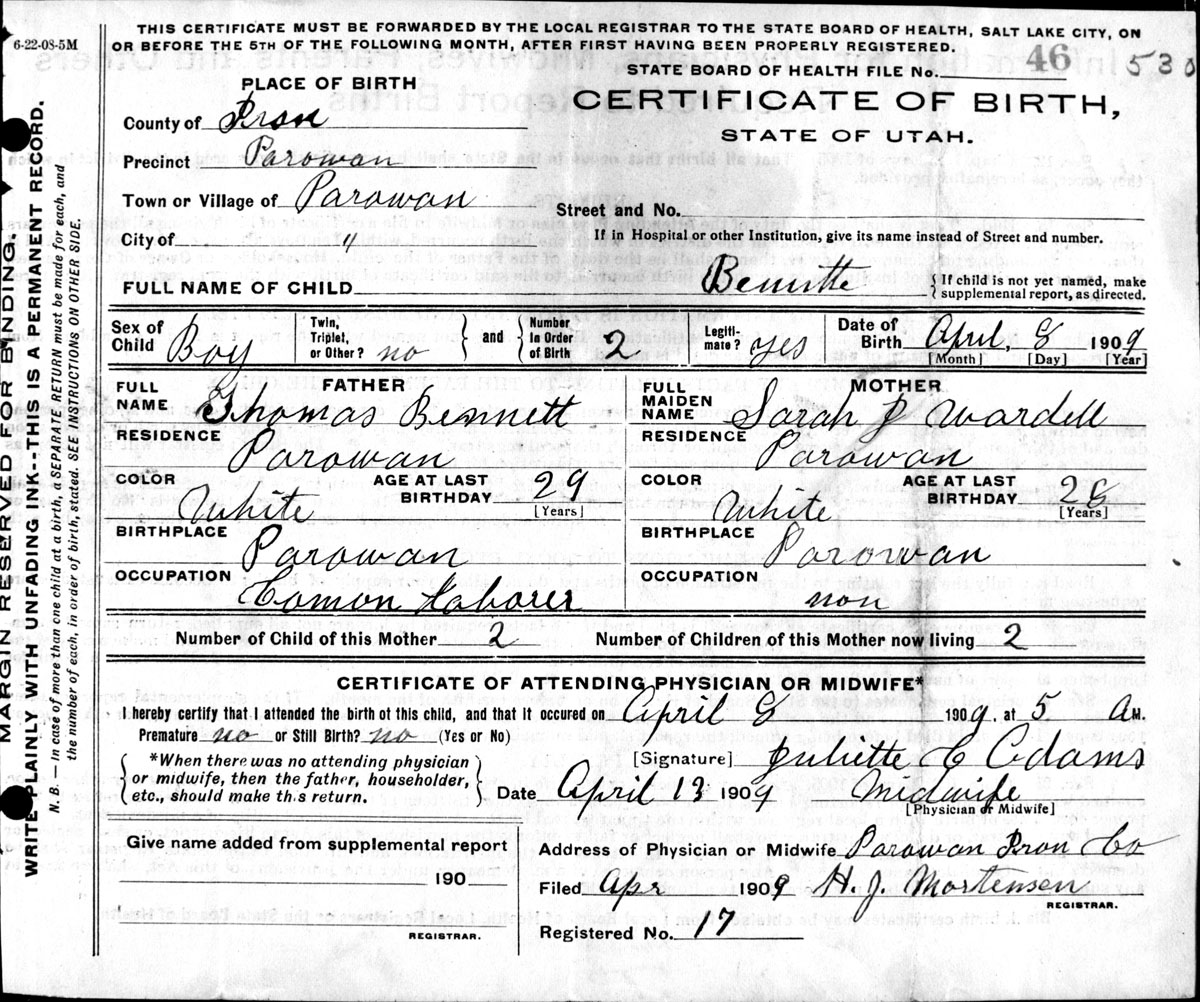 6-22-08-5M
THIS CERTIFICATE MUST BE FORWARDED BY THE LOCAL REGISTRAR TO THE STATE BOARD OF HEALTH, SALT LAKE CITY, ON
OR BEFORE THE 5TH OF THE FOLLOWING MONTH, AFTER FIRST HAVING BEEN PROPERLY REGISTERED.
STATE BOARD OF HEALTH FILE No. 46 530
PLACE OF BIRTH
CERTIFICATE OF BIRTH,
STATE OF UTAH.
County of Iron
Precinct Parowan
Town or Village of Parowan
Street and No.
City of "
If in Hospital or other Institution, give its name instead of Street and number.
FULL NAME OF CHILD Bennitte
If child is not yet named, make
supplemental report, as directed.
Sex of
Child Boy
Twin,
Triplet,
or Other? no
and
Number
in Order
of Birth 2
Legiti-
mate? yes
Date of
Birth April 8 1909
[Month] [Day] [Year]
FATHER
FULL
NAME Thomas Bennett
RESIDENCE
Parowan
COLOR
White
AGE AT LAST
BIRTHDAY 29
[Years]
BIRTHPLACE
Parowan
OCCUPATION
Comon Laborer
MOTHER
FULL
MAIDEN
NAME Sarah J Wardell
RESIDENCE
Parowan
COLOR
White
AGE AT LAST
BIRTHDAY 28
[Years]
BIRTHPLACE
Parowan
OCCUPATION
non
Number of Child of this Mother 2 Number of Children of this Mother now living 2
CERTIFICATE OF ATTENDING PHYSICIAN OR MIDWIFE*
I hereby certify that I attended the birth of this child, and that it occured on April 8 1909. at 5 A M.
Premature no or Still Birth? no (Yes or No)
*When there was no attending physician
or midwife, then the father, householder,
etc., should make this return.
[Signature] Juliette C Adams
Date April 13 1909 Midwife
[Physician or Midwife]
Give name added from supplemental report
190
REGISTRAR.
Address of Physician or Midwife Parowan Iron Co
Filed Apr 1909 H. J. Mortensen
REGISTRAR.
Registered No. 17
MARGIN RESERVED FOR BINDING.
WRITE PLAINLY WITH UNFADING INK--THIS IS A PERMANENT RECORD.
N. B. — In case of more than one child at a birth, a SEPARATE RETURN must be made for each, and
the number of each, in order of birth, stated. SEE INSTRUCTIONS ON OTHER SIDE.